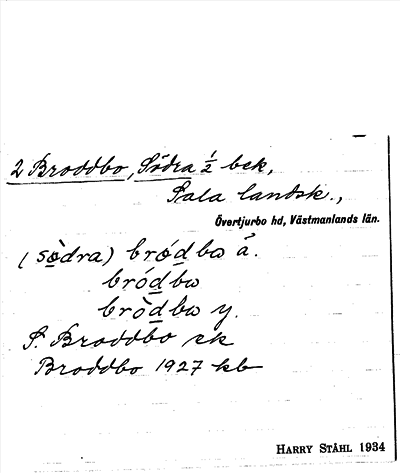 2 Broddbo, Södra ½ bek,
Sala landsk.,
Övertjurbo hd, Västmanlands län.
(sò̱dra) bród̲bω å.
bród̲bω
brò̱d̲bω y.
S. Broddbo ek
Broddbo 1927 kb
HARRY STÅHL 1934